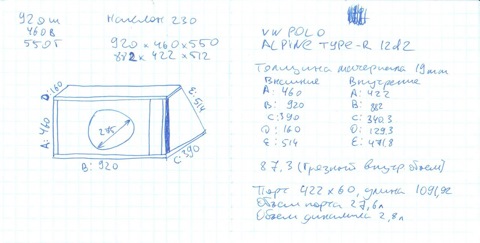 920ш
460в
550г
Наклон 230
920 × 460 × 550
882 × 422 × 512
D: 160
E: 514
A: 460
275
C: 390
B: 920
VW POLO
ALPINE TYPE-R 12d2
Толщина материала 19mm
Внешние Внутрение
A: 460 A: 422
B: 920 B: 882
C: 390 C: 340.3
D: 160 D: 129.3
E: 514 E: 471,8
87,3 (Грязный внутр объем)
Порт 422 × 60, длина 1091,92
Объем порта 27,6л
Объем динамика 2,8л